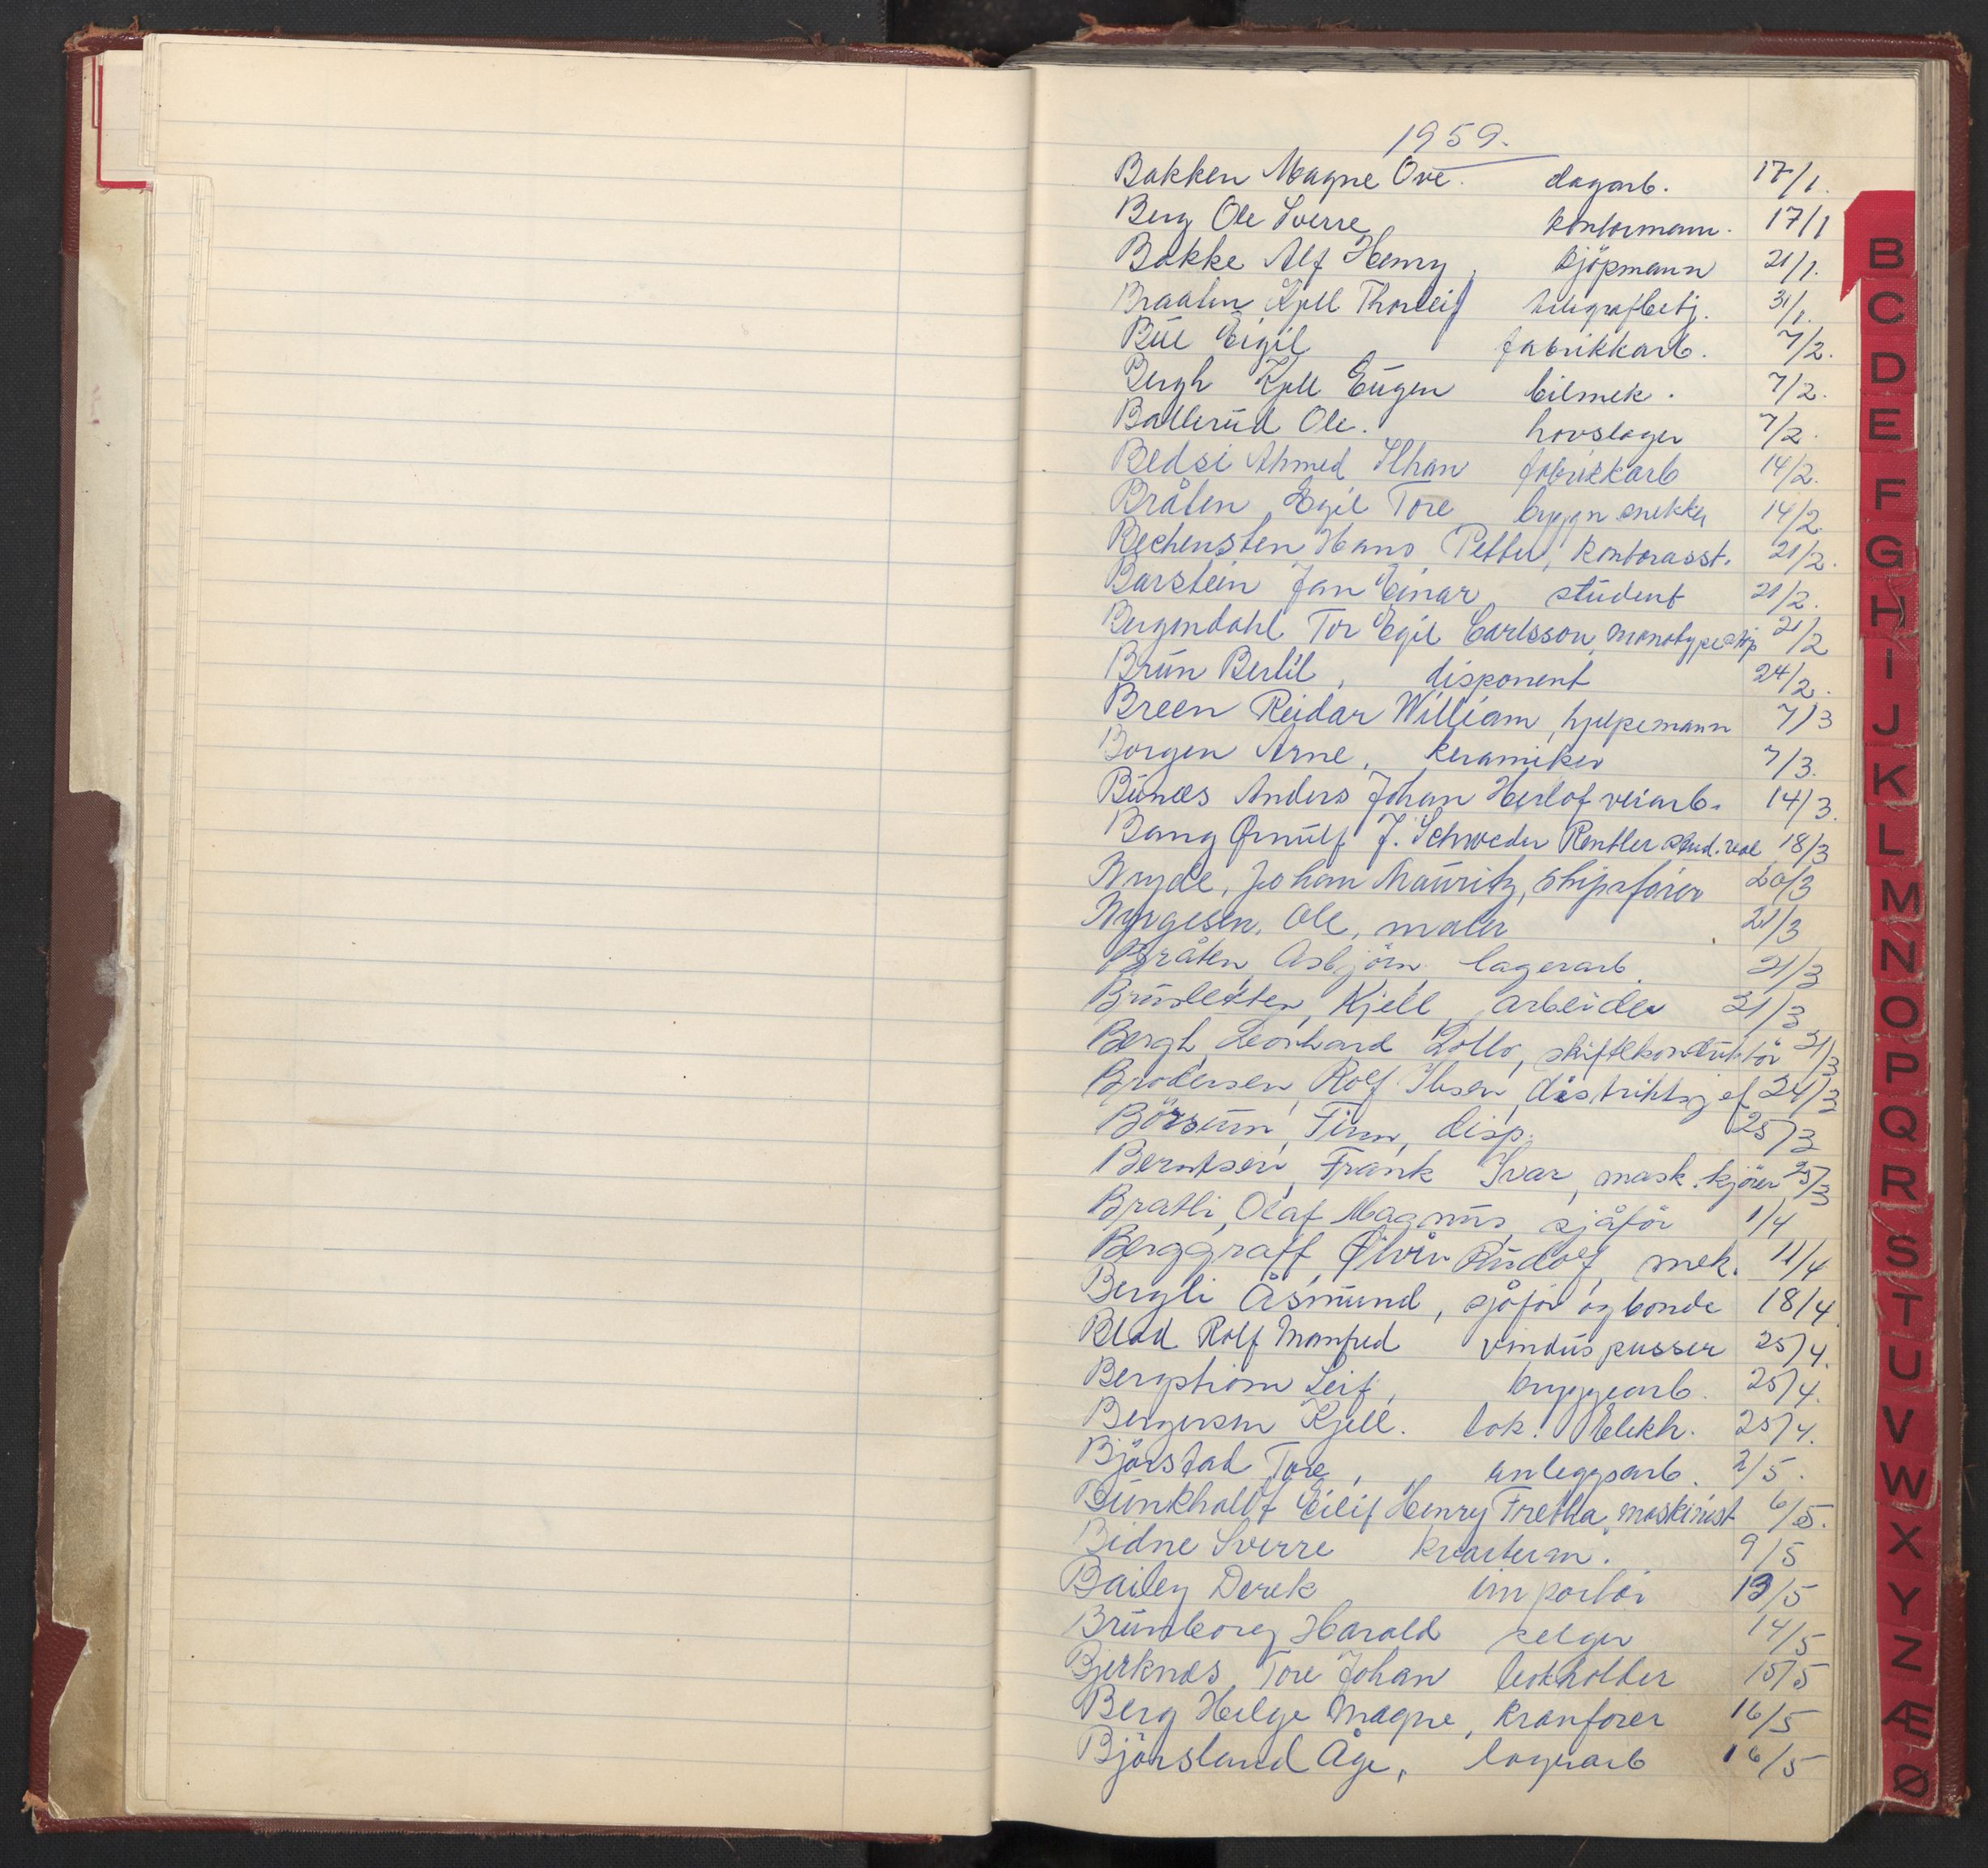 1959.
Bakken Magne Ove. dagarb. 17/1.
Berg Ole Sverre kontormann. 17/1
Bakke Alf Henry, kjöpmann 21/1.
Braaten Kjell Thorleif telegrafbetj. 31/1.
Büe Eigil fabrikkarb. 7/2.
Bergh Kjell Eugen bilmek. 7/2.
Ballerud Ole. hovslager 7/2.
Bedsi Ahmed Ilhan fabrikkarb 14/2.
Bråten Egil Tore bygn snekker 14/2.
Rechensten Hans Petter, kontorasst. 21/2.
Barstein Jan Einar, student 21/2.
Bergendahl Tor Egil Carlsson, monotype 21/2
Brun Bertil, disponent 24/2.
Breen Reidar William, hjelpemann 7/3
Borgen Arne, keramiker 7/3.
Bunæs Anders Johan Herlof veiarb. 14/3.
Bang Ørnulf J. Schweder Rentler stud. real 18/3
Johan Mauritz, skipsfører 20/3
Byrgesen, Ole, maler 21/3
Bråten, Asbjörn lagerarb. 21/3
Brusletten, Kjell, arbeider 21/3
Bergh, Leonhard Lollo, skiftekonduktör 21/3
Brodersen, Rolf Ibsen, distriktsj ef 24/3
Börsum, Finn, disp. 25/3
Berntsen, Frank Ivar, mask.kjörer 25/3
Bratli, Olaf Magnus, sjåför 1/4
Berggraff, Øivin Rudolf, mek. 11/4
Bergli Åsmund, sjåför og bonde 18/4.
Blad Rolf Manfred vinduspusser 25/4.
Bergström Leif, bryggearb. 25/4.
Bergersen Kjell. lok. Elekh. 25/4.
Björstad Tore, anleggsarb. 2/5.
Bunkholt Eilif Henry Fretha, maskinist 6/5.
Bidne Sverre kvarterm. 9/5
Bailey Derek importör 13/5
Brunborg Harald selger 14/5
Bjerknes Tore Johan bokholder 15/5
Berg Helge Magne, kranförer 16/5
Björsland Åge, lagerarb 16/5
B
C
D
E
F
G
H
I
J
K
L
M
N
O
P
Q
R
S
T
U
V
W
X
Y
Z
Æ
Ø